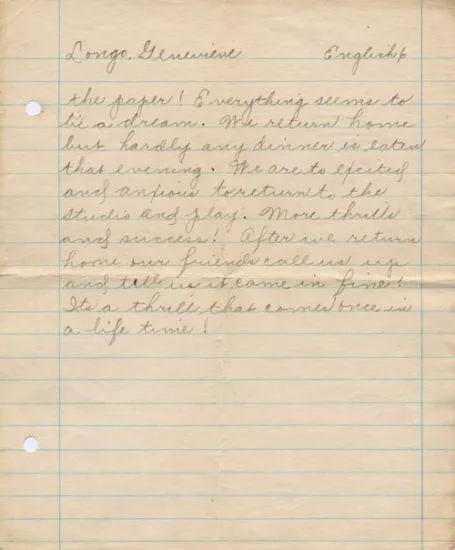 Longo, Genevieve English 6
the paper! Everything seems to
be a dream. We return home
but hardly any dinner is eaten
that evening. We are to excited
and anxious to return to the
studio and play. More thrills
and success! After we return
home our friends call us up
and tell us it came in fine!
It's a thrill that comes once in
a life time!